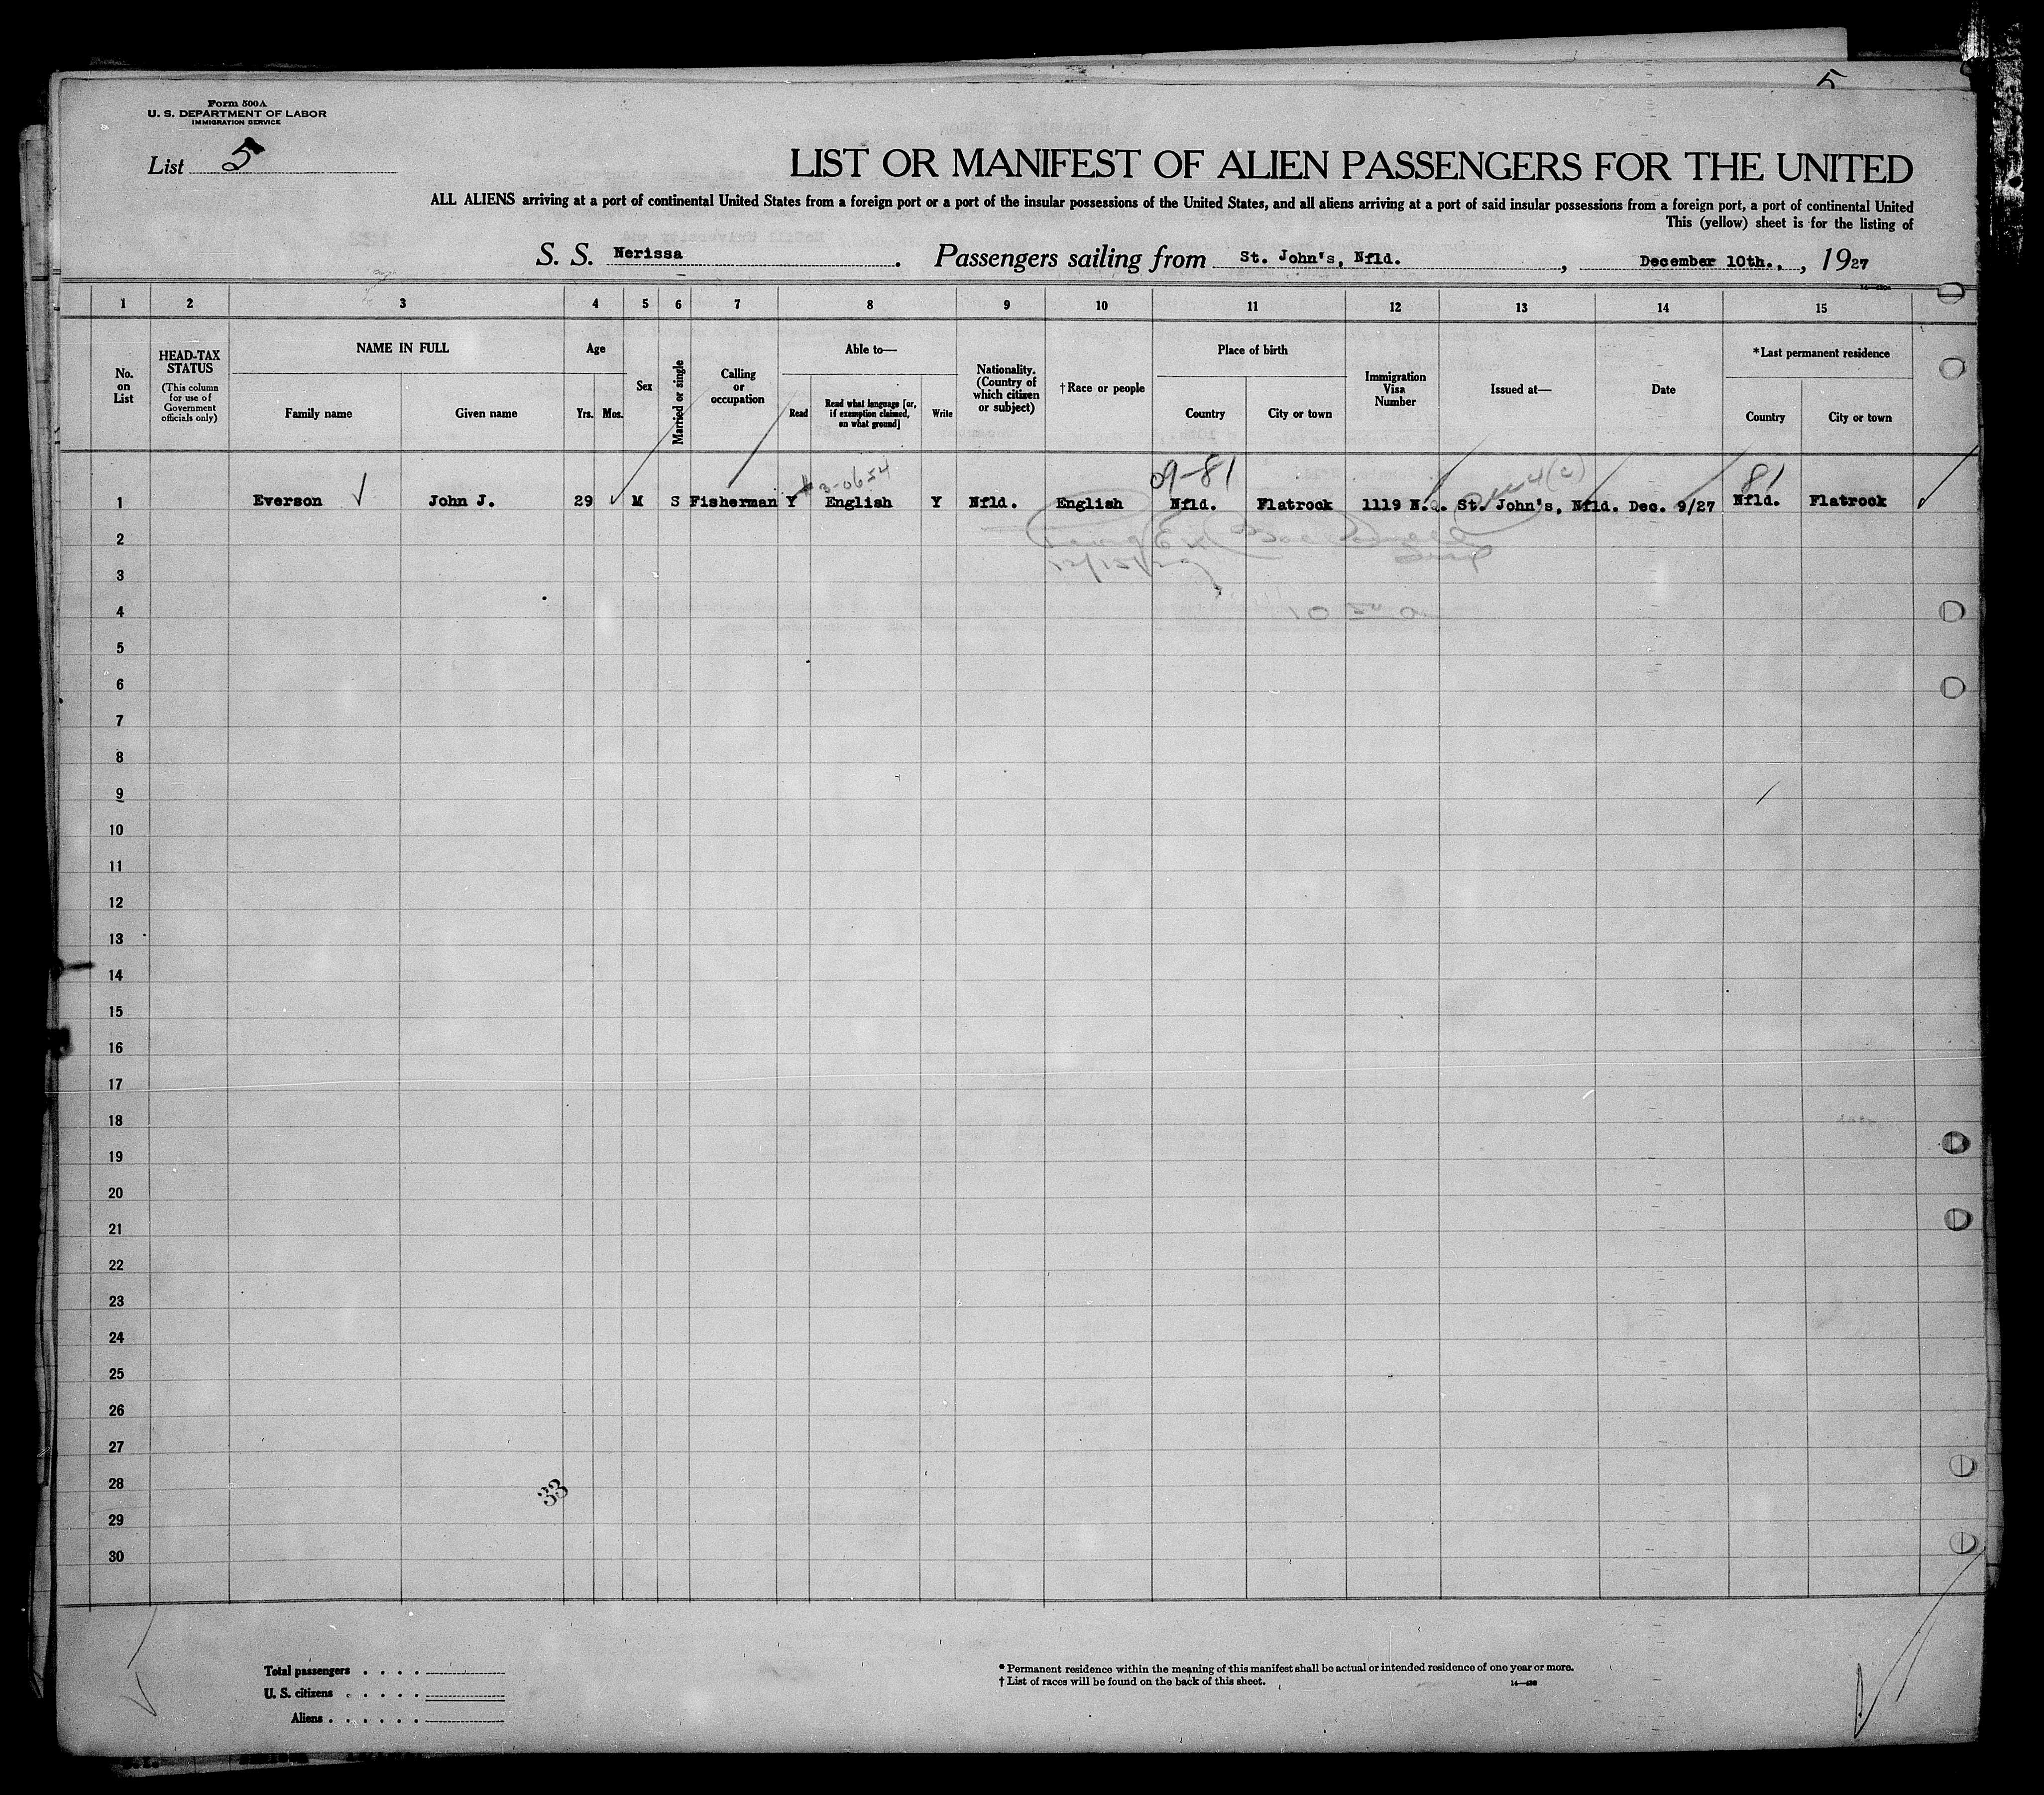 5
Form 500A
U. S. DEPARTMENT OF LABOR
IMMIGRATION SERVICE
List 5
LIST OR MANIFEST OF ALIEN PASSENGERS FOR THE UNITED
ALL ALIENS arriving at a port of continental United States from a foreign port or a port of the insular possessions of the United States, and all aliens arriving at a port of said insular possessions from a foreign port, a port of continental United
This (yellow) sheet is for the listing of
S. S. Nerissa. Passengers sailing from St. John's, Nfld., December 10th., , 1927
1 2 3 4 5 6 7 8 9 10 11 12 13 14 15
No. on List
HEAD-TAX STATUS
(This column for use of Government officials only)
NAME IN FULL
Family name
Given name
Age
Yrs. Mos.
Sex
Married or single
Calling or occupation
Able to—
Read
Read what language [or, if exemption claimed, on what ground]
Write
Nationality. (Country of which citizen or subject)
†Race or people
Place of birth
Country
City or town
Immigration Visa Number
Issued at—
Date
*Last permanent residence
Country
City or town
3-0654
09-81
4(c)
81
1 Everson John J. 29 M S Fisherman Y English Y Nfld. English Nfld. Flatrock 1119 N.Q. St. John's, Nfld. Dec. 9/27 Nfld. Flatrock
2
3
4
5
6
7
8
9
10
11
12
13
14
15
16
17
18
19
20
21
22
23
24
25
26
27
28
33
29
30
Total passengers . . . .
U. S. citizens . . . . .
Aliens . . . . . .
* Permanent residence within the meaning of this manifest shall be actual or intended residence of one year or more.
† List of races will be found on the back of this sheet.